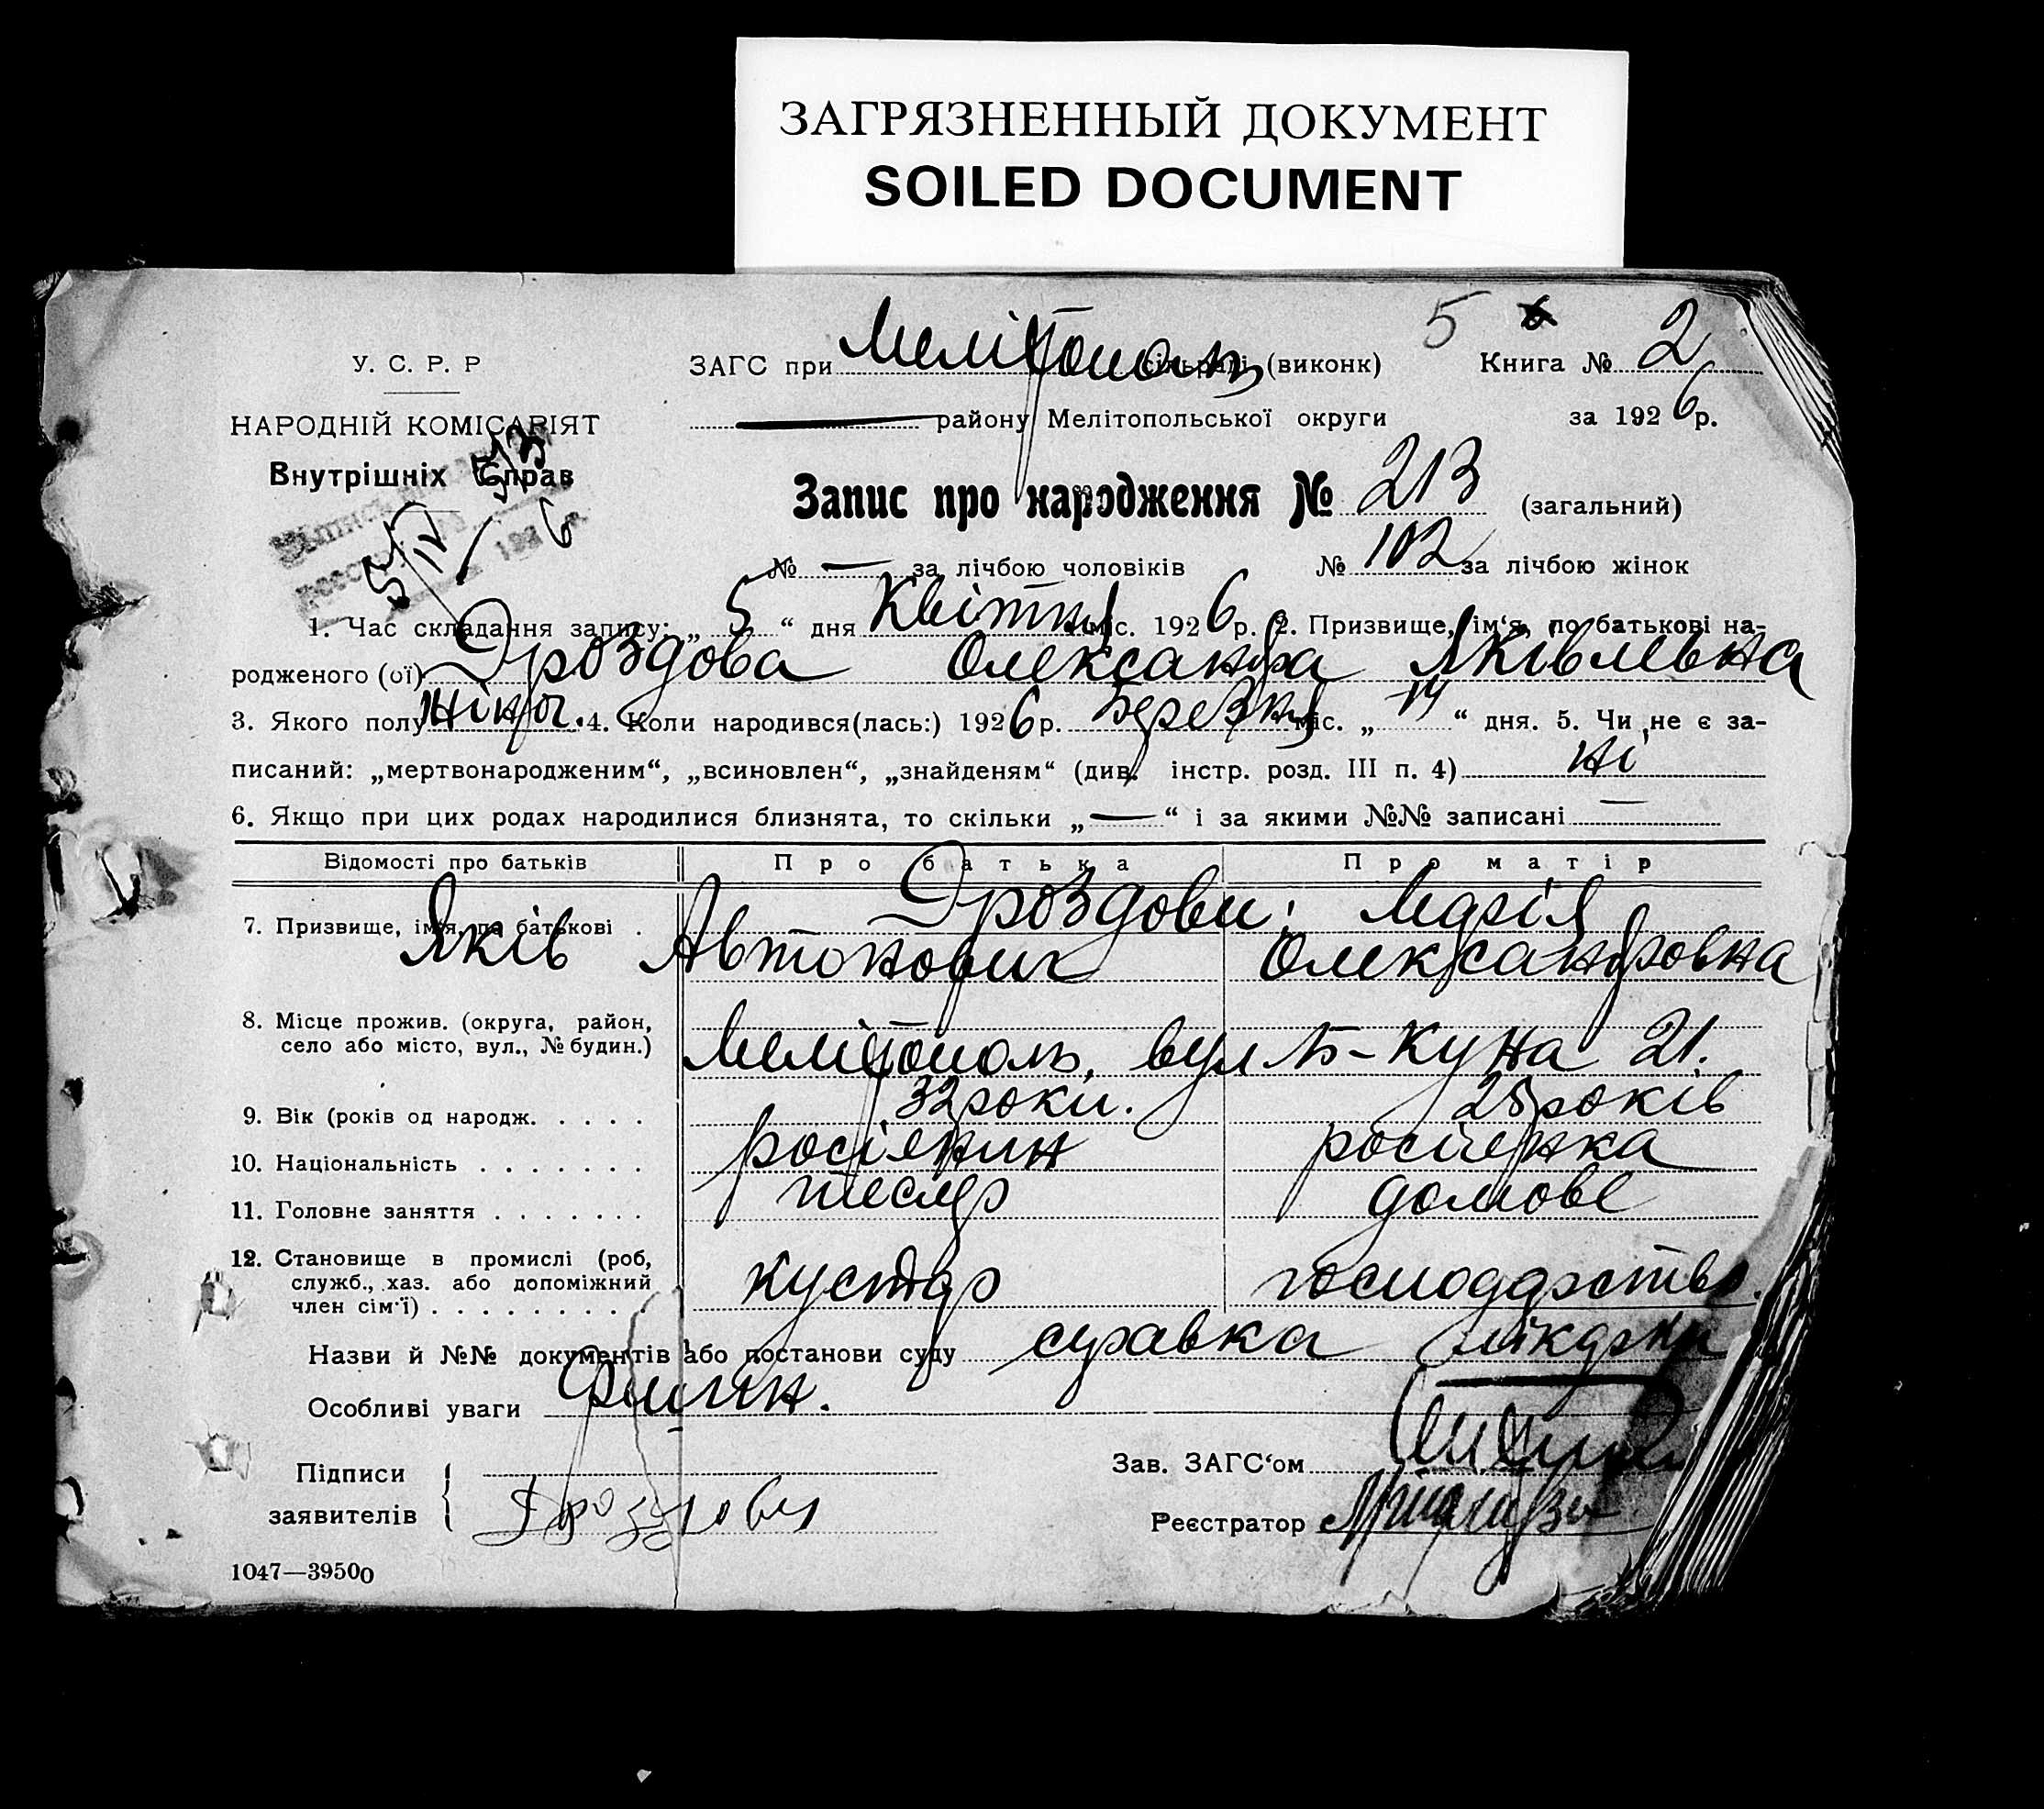 ЗАГРЯЗНЕННЫЙ ДОКУМЕНТ
SOILED DOCUMENT
5
У. С. Р. Р
ЗАГС при Мелітополь сільраді (виконк)
Книга № 2
НАРОДНІЙ КОМІСАРІЯТ
району Мелітопольської округи
за 1926 р.
Внутрішніх Справ
Запис про народження № 213 (загальний)
№ — за лічбою чоловіків № 102 за лічбою жінок
1. Час складання запису: „5“ дня Квітня міс. 1926 р. 2. Призвище, ім‘я, по батькові на-
родженого (ої) Дроздова Олександра Яківлевна
3. Якого полу жіноч. 4. Коли народився(лась:) 1926 р. Березня міс. „14“ дня. 5. Чи не є за-
писаний: „мертвонародженим“, „всиновлен“, „знайденям“ (див. інстр. розд. III п. 4) ні
6. Якщо при цих родах народилися близнята, то скільки „—“ і за якими №№ записані —
Відомості про батьків Про батька Про матір
Дроздови: Марія
7. Призвище, ім‘я, по батькові .
Яків Автонович Олександровна
8. Місце прожив. (округа, район,
село або місто, вул., № будин.)
Мелітополь, вул Б-Куна 21.
9. Вік (років од народж. . . . . 32 роки. 25 років
10. Національність . . . . . . . росіянин росіянка
11. Головне заняття . . . . . . . тесляр домове
12. Становище в промислі (роб,
служб., хаз. або допоміжний
член сім‘ї) . . . . . . . . кустар господарство.
Назви й №№ документів або постанови суду справка лікарки
Особливі уваги
Підписи
заявителів
Дроздова
Зав. ЗАГС‘ом
Реєстратор
1047—39500